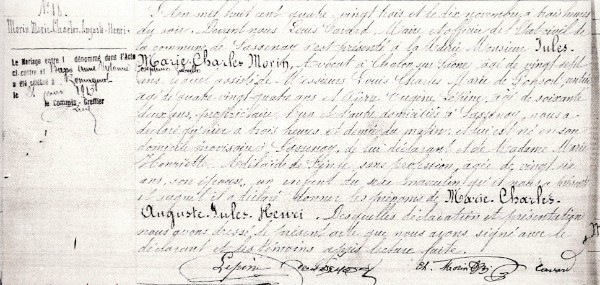 No 18.
Morin Marie, Charles, Auguste, Henri.
Le Mariage entre l dénommé dans l'Acte
ci-contre et
a été célébré à
le 1913
Le Commis-Greffier
L'an mil huit cent quatre vingt trois et le dix novembre, à trois heures
du soir. Devant nous Louis Maire officier de l'état civil de
la commune de Sassenay s'est présenté à la Mairie Monsieur Jules
Marie Charles Morin, Avocat à Chalon sur Saône, âgé de vingt sept
ans, lequel assisté de Messieurs Louis Charles Marie de
âgé de quatre vingt quatre ans et Pierre Eugène Lépin, âgé de soixante
deux ans, propriétaire, l'un et l'autre domiciliés à Sassenay, nous a
déclaré qu'hier à trois heures et demie du matin, il lui est né en son
domicile provisoire à Sassenay, de lui déclarant et de Madame Marie
Henriette Adélaïde de sans profession, âgée de vingt
ans, son épouse, un enfant du sexe masculin qu'il nous a présenté
et auquel il a déclaré donner les prénoms de Marie, Charles,
Auguste, Jules, Henri. Desquelles déclaration et présentation
nous avons dressé le présent acte que nous avons signé avec le
déclarant et les témoins après lecture faite.
Lépin Ch. Morin